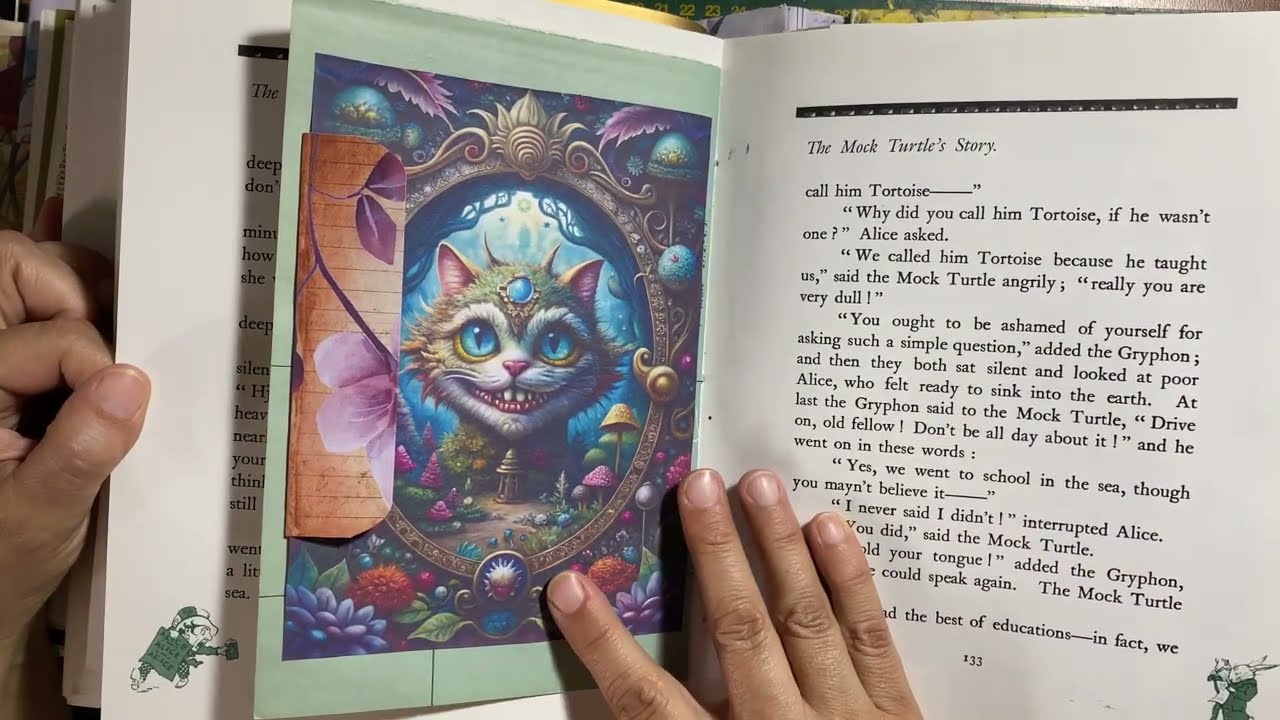 21 22 23 24
The
deep
don't
minu
how
she
deep
silen
heav
near
your
thin
still
went
a lit
sea.
The Mock Turtle's Story.
call him Tortoise——”
“Why did you call him Tortoise, if he wasn't
one?” Alice asked.
“We called him Tortoise because he taught
us,” said the Mock Turtle angrily; “really you are
very dull!”
“You ought to be ashamed of yourself for
asking such a simple question,” added the Gryphon;
and then they both sat silent and looked at poor
Alice, who felt ready to sink into the earth. At
last the Gryphon said to the Mock Turtle, “Drive
on, old fellow! Don't be all day about it!” and he
went on in these words:
“Yes, we went to school in the sea, though
you mayn't believe it——”
“I never said I didn't!” interrupted Alice.
You did,” said the Mock Turtle.
old your tongue!” added the Gryphon,
e could speak again. The Mock Turtle
nd the best of educations—in fact, we
133